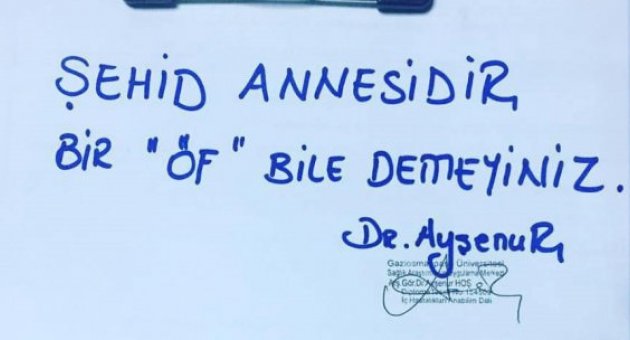 ŞEHİD ANNESİDİR,
BİR "ÖF" BİLE DEMEYİNİZ.
Dr. Ayşenur
Gaziosmanpaşa Üniversitesi
Sağlık Araştırma Uygulama Merkezi
Arş.Gör.Dr.Ayşenur HOŞ
Diploma Tescil No
İç Hastalıkları Anabilim Dalı